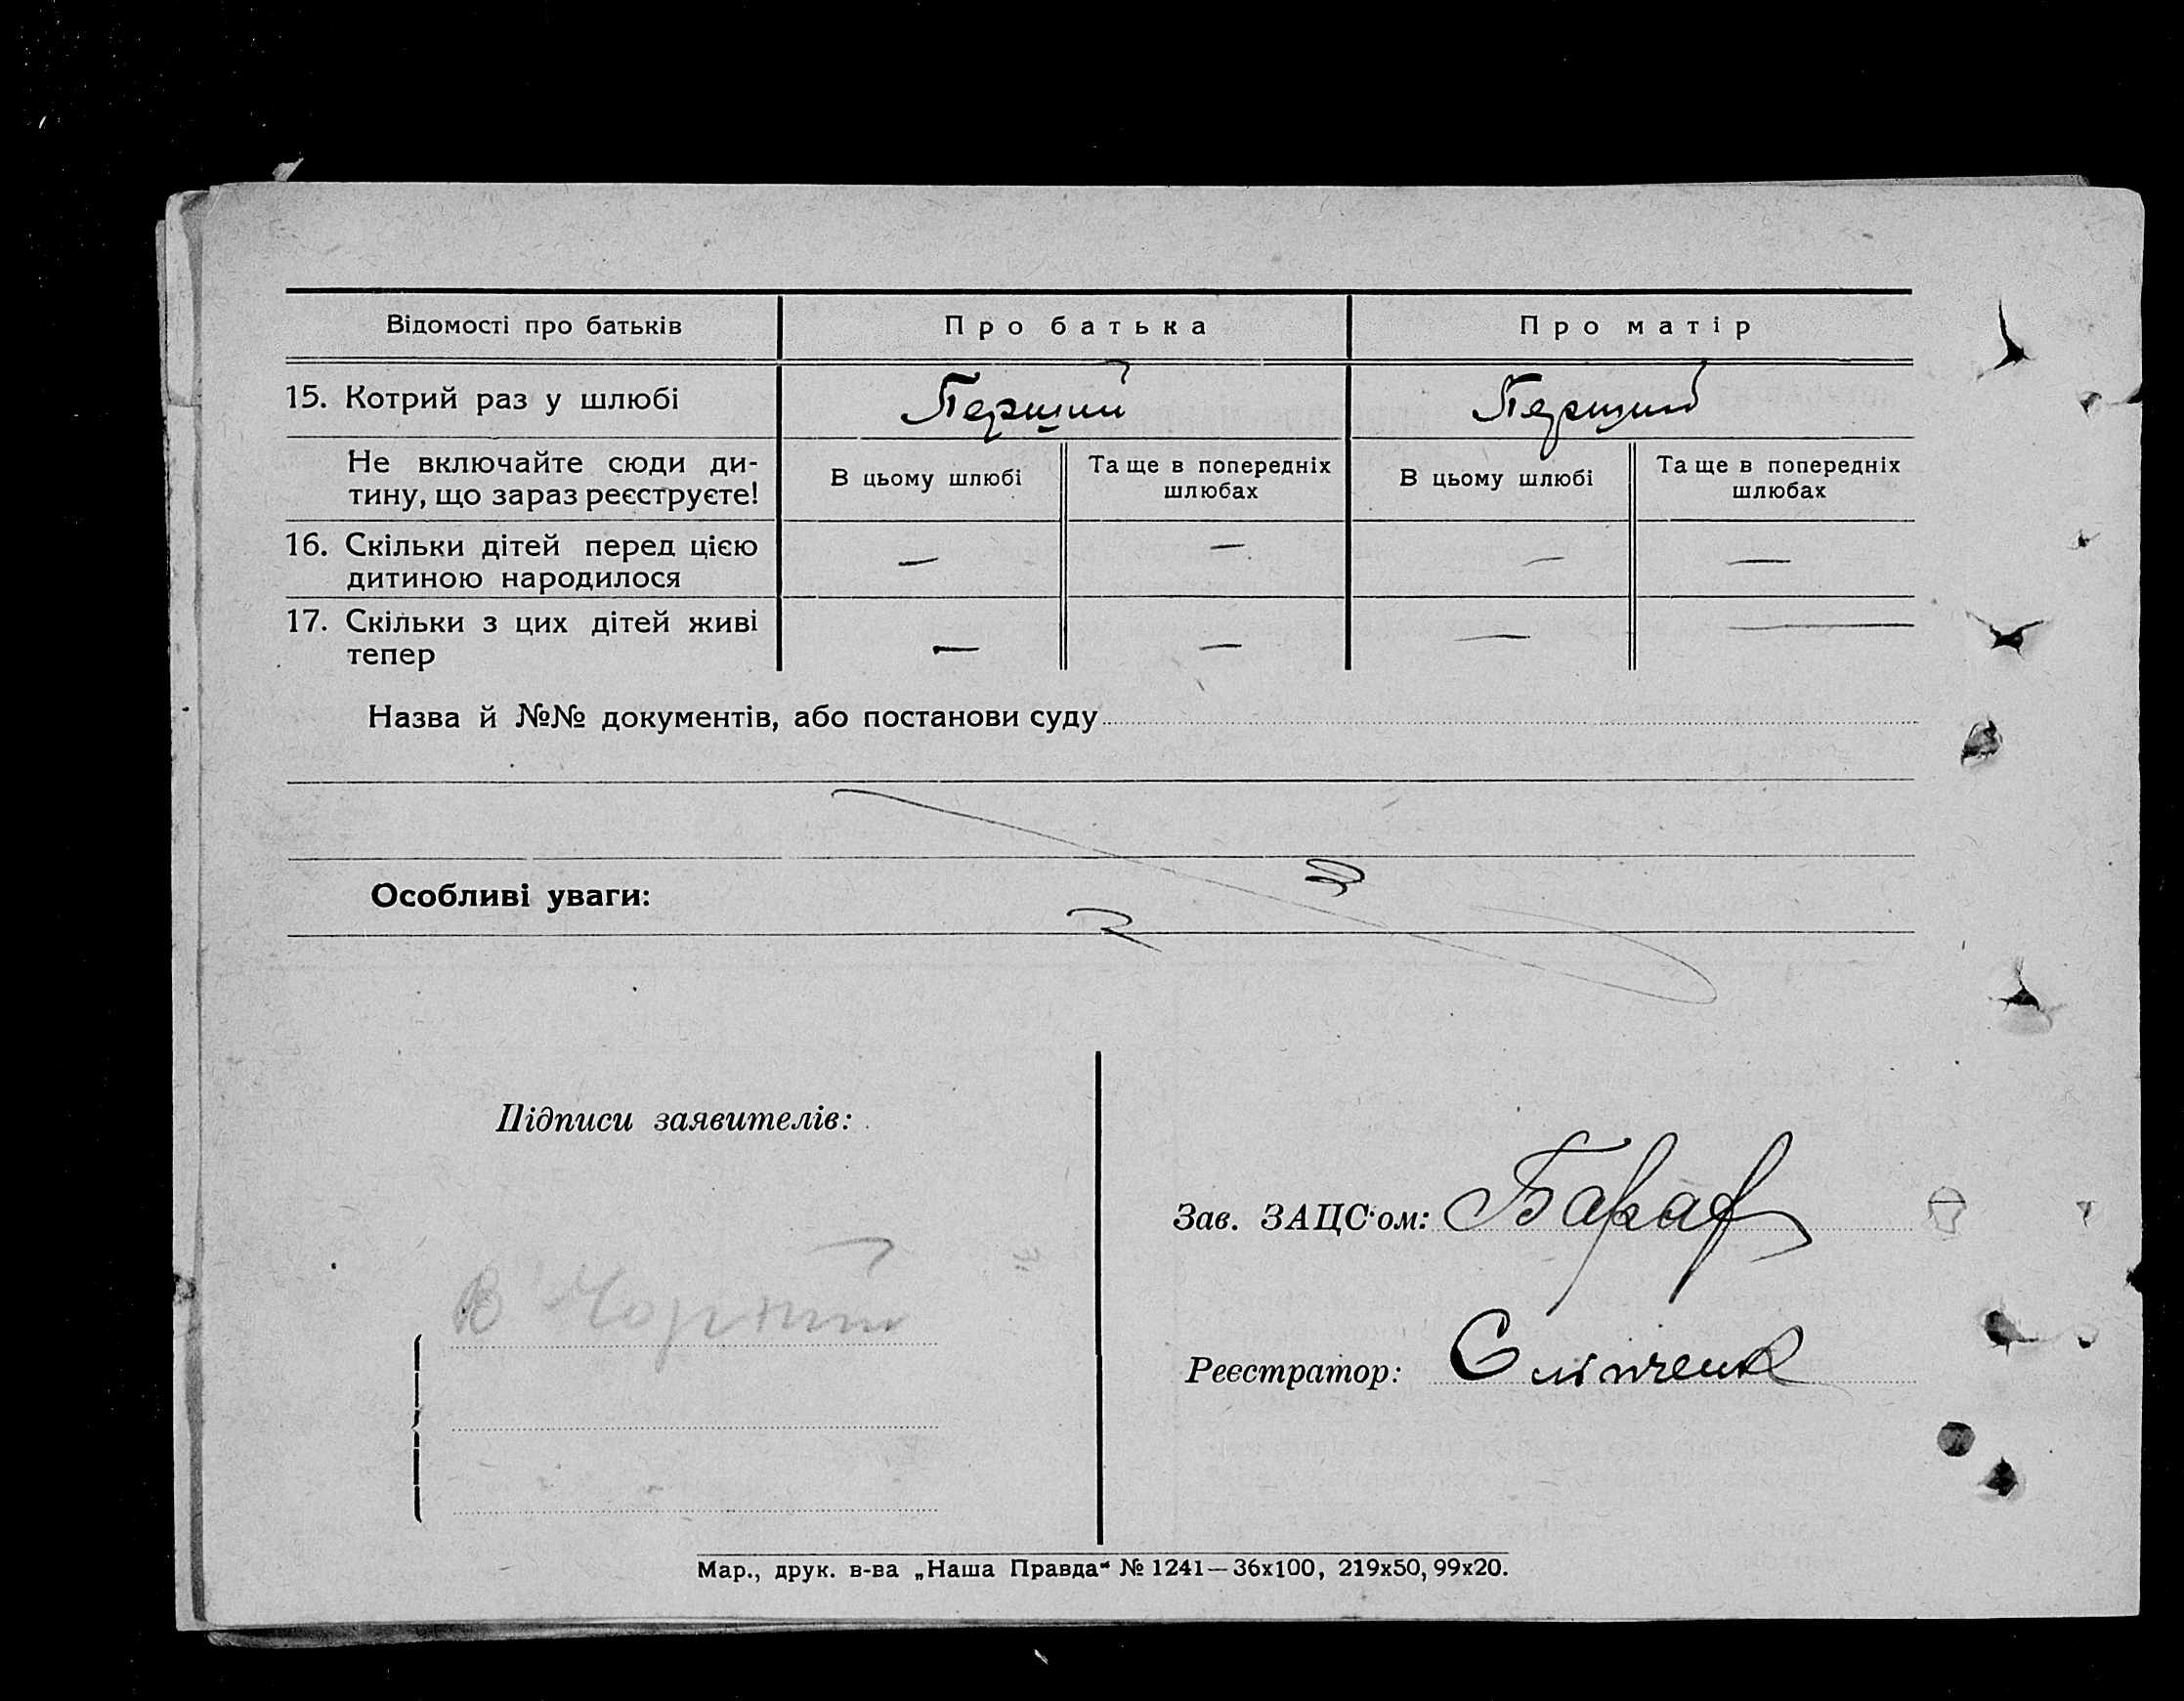 Відомості про батьків
Про батька
Про матір
15. Котрий раз у шлюбі
Перший
Перший
Не включайте сюди ди-
тину, що зараз реєструєте!
В цьому шлюбі
Та ще в попередніх
шлюбах
В цьому шлюбі
Та ще в попередніх
шлюбах
16. Скільки дітей перед цією
дитиною народилося
— — — —
17. Скільки з цих дітей живі
тепер
— — — —
Назва й №№ документів, або постанови суду
Особливі уваги:
Підписи заявителів:
В
Зав. ЗАЦС'ом:
Реєстратор:
Мар., друк. в-ва „Наша Правда“ № 1241—36х100, 219х50, 99х20.